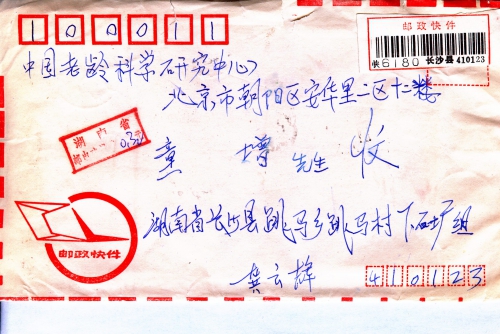 100011
邮政快件
快6180 长沙县 410123
中国老龄科学研究中心
北京市朝阳区安华里二区十二楼
湖南省
0.30
童 增 先生 收
湖南省长沙县跳马乡跳马村下石矿组
邮政快件
龚云辉
410123